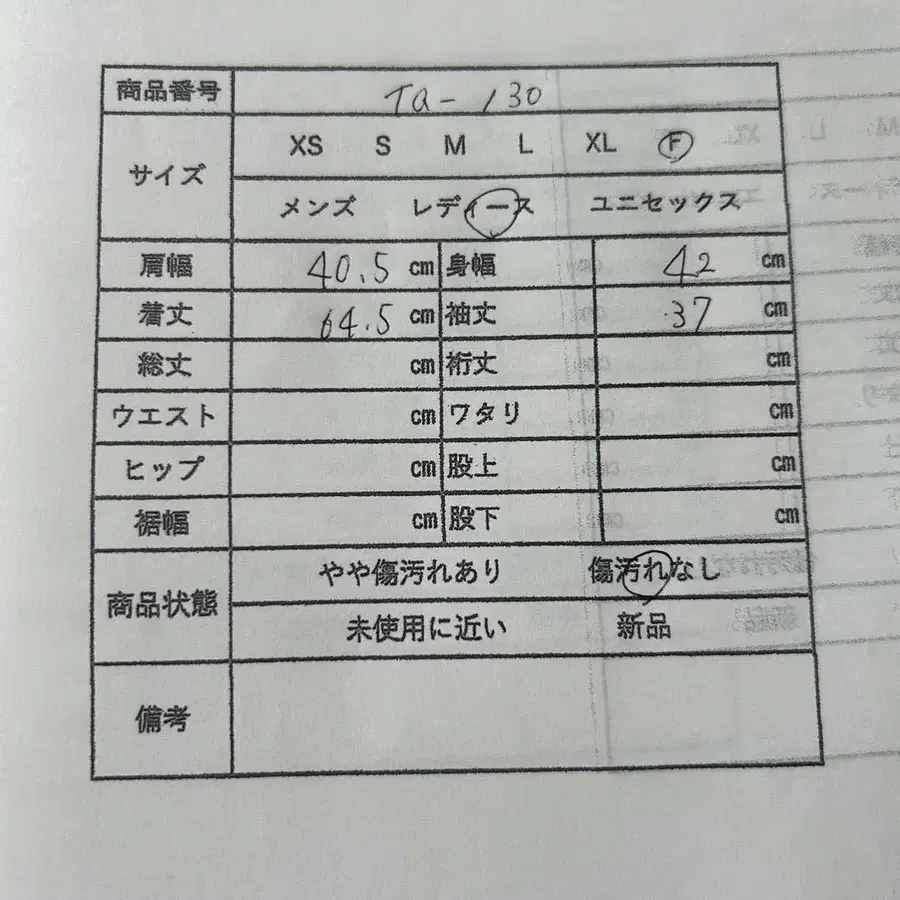 商品番号 Ta-130
サイズ XS S M L XL F
メンズ レディース ユニセックス
肩幅 40.5 cm 身幅 42 cm
着丈 64.5 cm 袖丈 37 cm
総丈 cm 裄丈 cm
ウエスト cm ワタリ cm
ヒップ cm 股上 cm
裾幅 cm 股下 cm
商品状態 やや傷汚れあり 傷汚れなし
未使用に近い 新品
備考